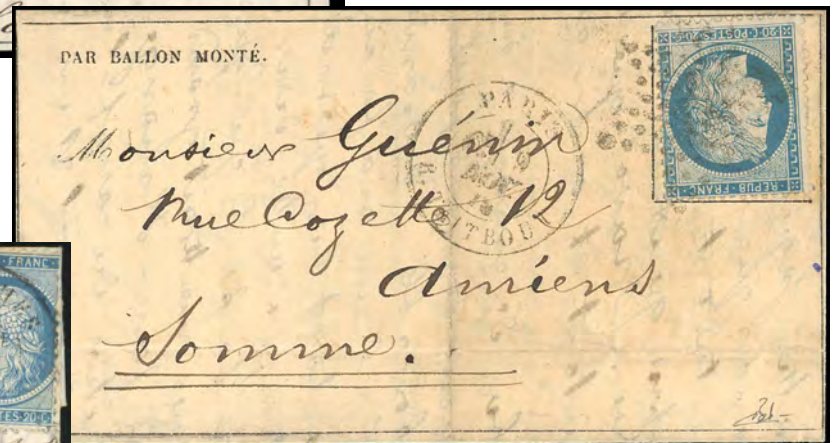 PAR BALLON MONTÉ.
20·C·POSTES·20·C
REPUB·FRANC
PARIS
9
NOV
R. TAITBOUT
Monsieur Guénin
Rue Cozette 12
Amiens
Somme.
FRANC